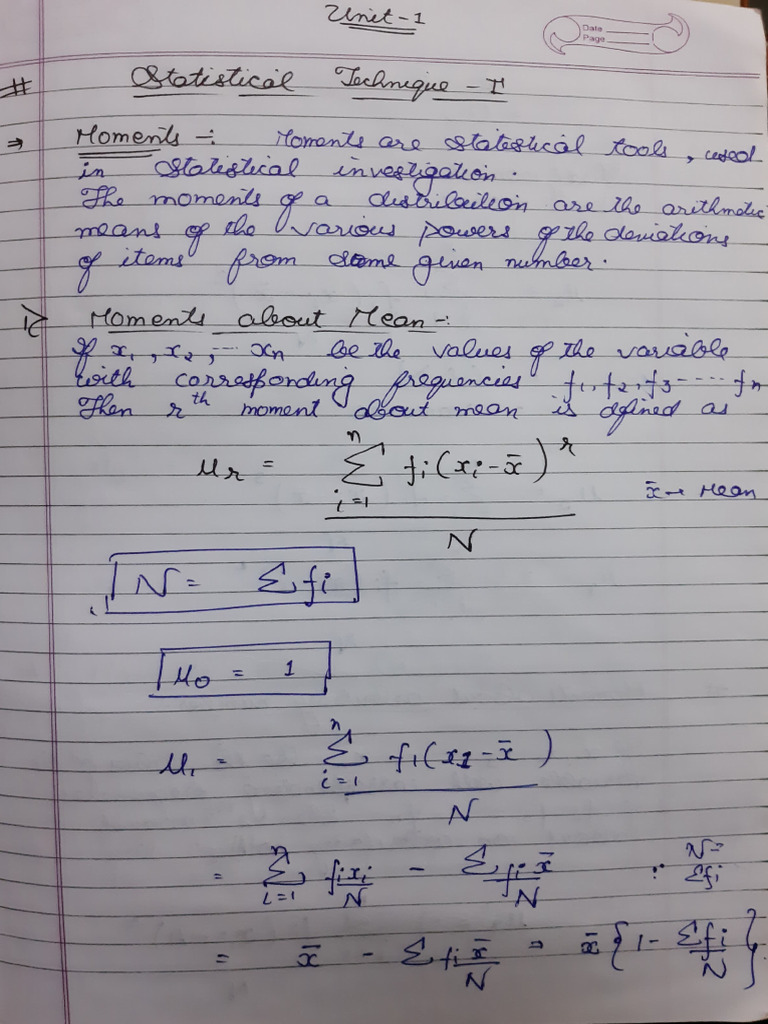 Unit-1
Date
Page
# Statistical Technique - I
⇒ Moments -: Moments are statistical tools, used
in statistical investigation.
The moments of a distribution are the arithmetic
means of the various powers of the deviations
of items from some given number.
Moments about Mean -:
If x₁, x₂, --- xn be the values of the variable
with corresponding frequencies f₁, f₂, f₃ ----- fn
Then rth moment about mean is defined as
μr = n Σ i=1 fi(xi - x̄)^r / N
x̄ → Mean
N = Σfi
μ₀ = 1
μ₁ = n Σ i=1 f₁(x1 - x̄) / N
= n Σ i=1 fixi/N - Σ fi x̄/N ∵ N = Σfi
= x̄ - Σ fi x̄/N = x̄ {1 - Σfi/N}